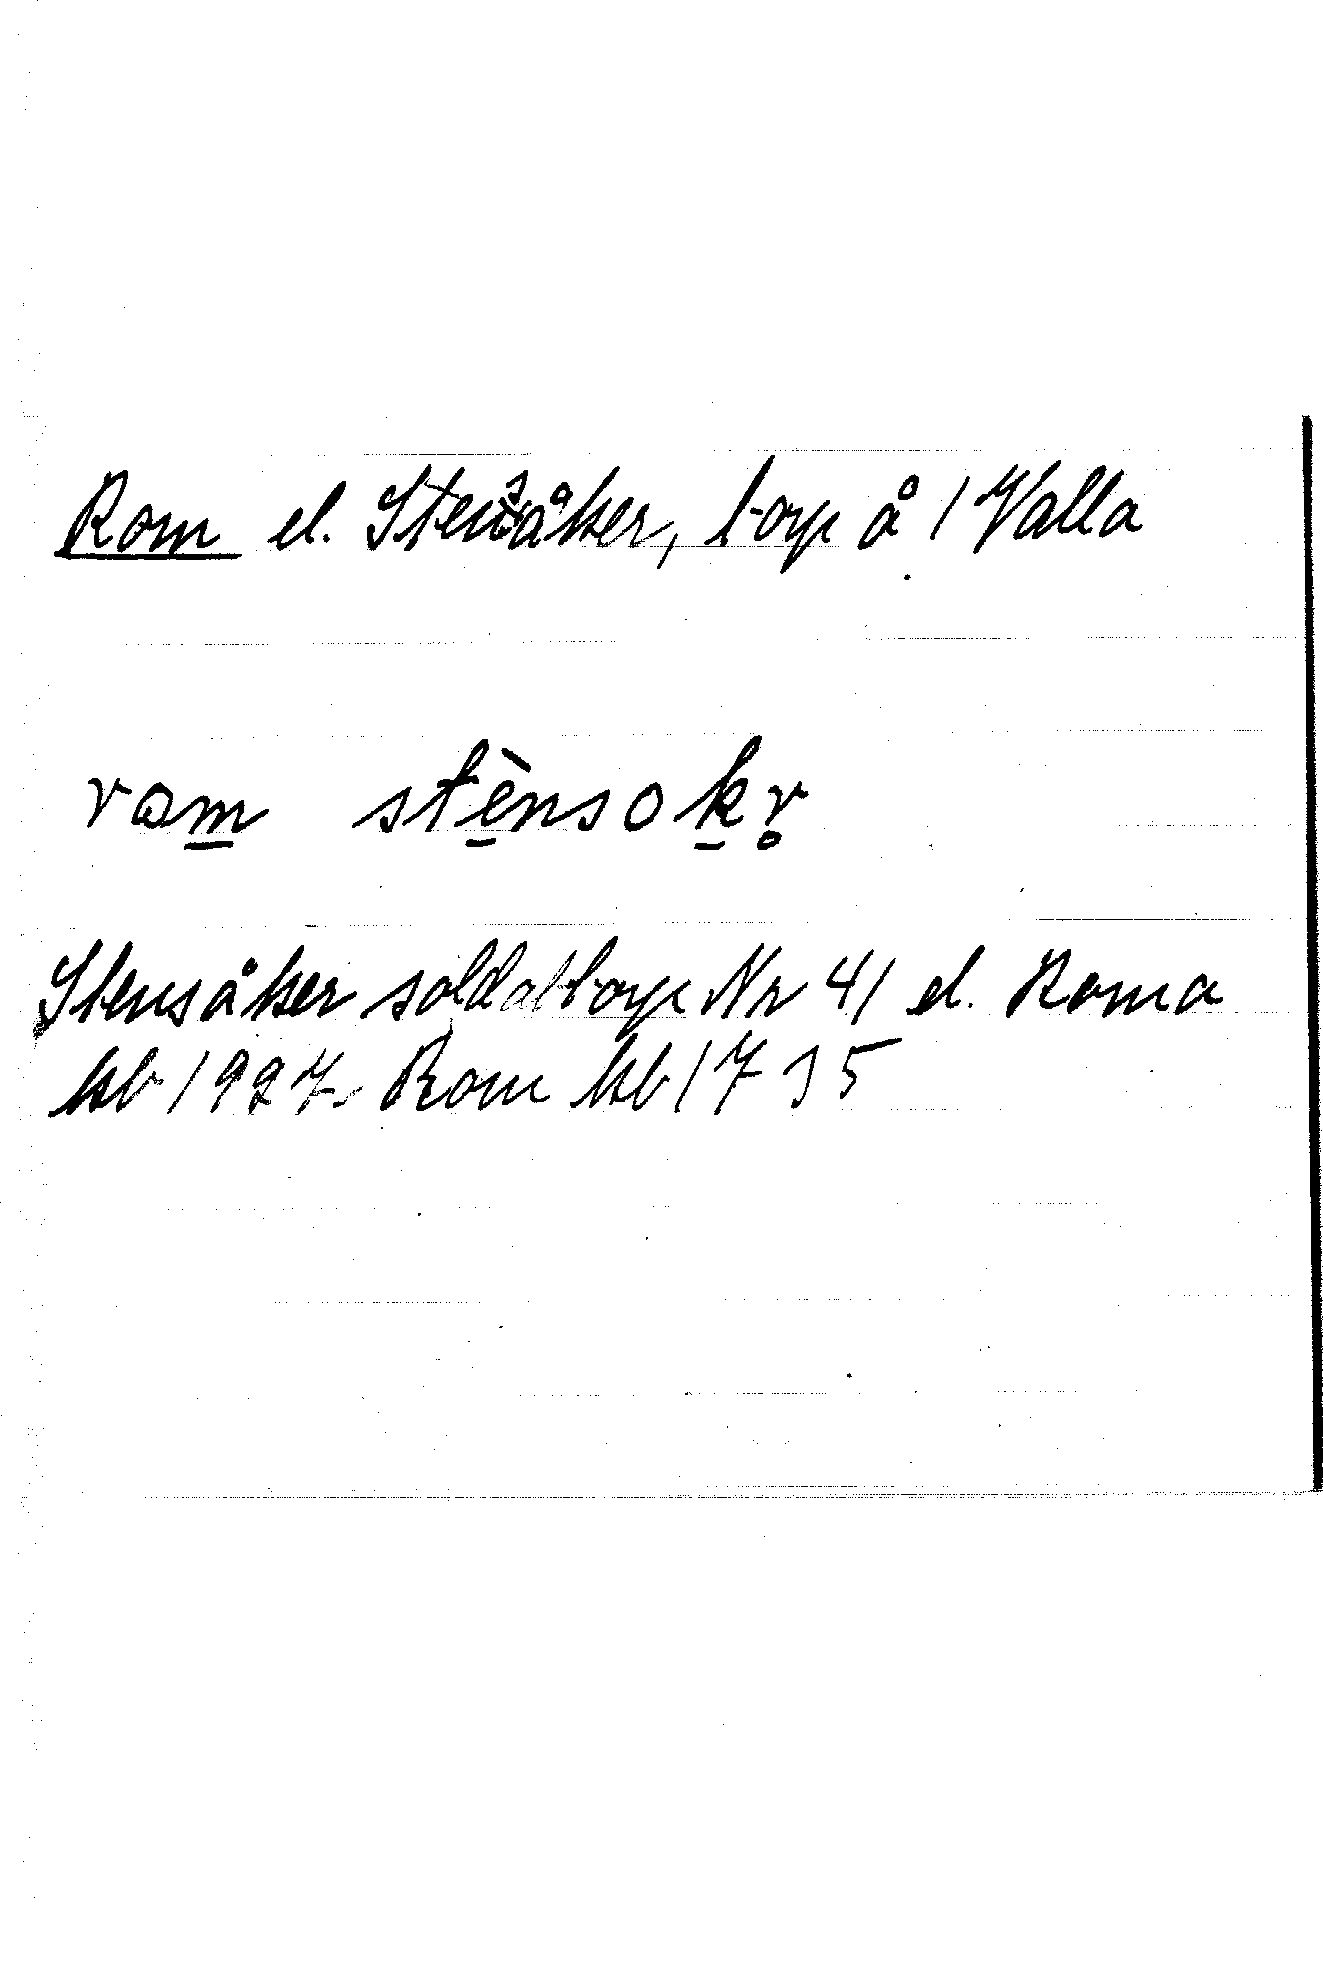 Rom el. Stensåker, torp å 1 Valla
rom stènsokr̥
Stensåker soldattorp Nr 41 el. Roma
kb 1927. Rom kb 1735